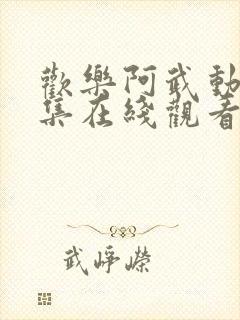 歡樂阿武動
集在綫觀看
武崢嶸